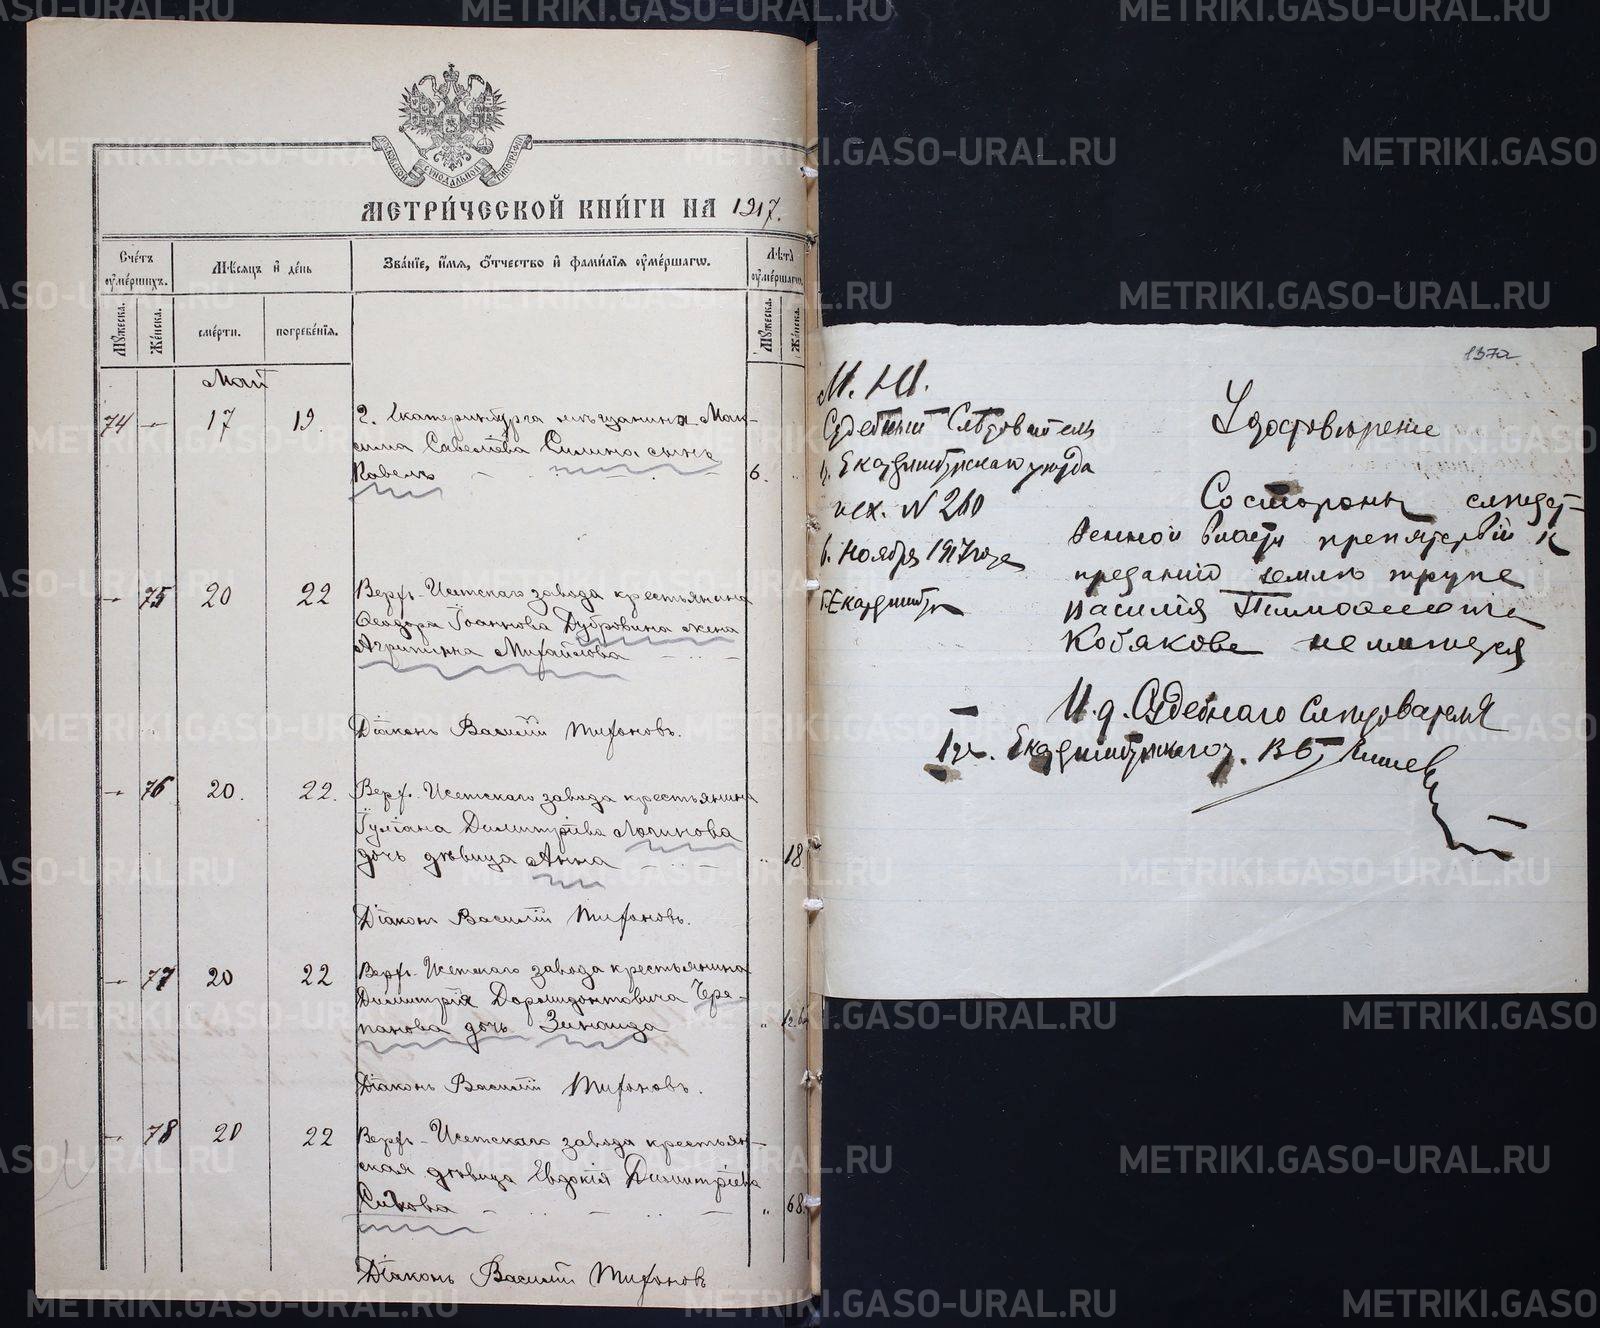 МОСКОВСКОЙ СѴНОДАЛЬНОЙ ТИПОГРАФІИ
МЕТРИ́ЧЕСКОЙ КНИ́ГИ НА 1917.
Счéтъ ᲂумéршихъ.
Мѣ́сяцъ и дéнь
Звáнїе, и́мя, ѻ́тчество и фами́лїя ᲂумéршагѡ.
Лѣтà ᲂумéршагѡ.
Мꙋ́жеска.
Жéнска.
смéрти.
погребéнїя.
Мꙋ́жеска.
Жéнска.
Май
74 - 17 19. Г. Екатеринбурга мѣщанина Мак-
сима Савелiева Силина сынъ
Павелъ 6.
- 75 20 22 Верхъ-Исетскаго завода крестьянина
Ѳеодора Iоаннова Дубровина жена
Агрипина Михайлова
Дiаконъ Василiй Тихоновъ.
- 76 20. 22. Верх-Исетскаго завода крестьянина
Iулiана Димитрiева Логинова
дочь дѣвица Анна " 18
Дiаконъ Василiй Тихоновъ.
- 77 20 22 Верхъ-Исетскаго завода крестьянина
Димитрiя Дормидонтовича Чере-
панова дочь Зинаида "
Дiаконъ Василiй Тихоновъ.
- 78 20 22 Верхъ-Исетскаго завода крестьян-
ская дѣвица Евдокiя Димитрiева
Сивкова " 68.
Дiаконъ Василiй Тихоновъ
137а
М. Ю.
Судебный Слѣдователь
Екатеринбургскаго уѣзда
исх. N 260
6. Ноября 1917 года
г. Екатеринбург
Удостовѣренiе
Со стороны слѣдст-
венной власти препятствiй к
преданiю землѣ трупа
Василiя Тимофеевича
Кобякова не имѣется
И. д. Судебнаго Слѣдователя
Екатеринбургскаго у.
METRIKI.GASO-URAL.RU